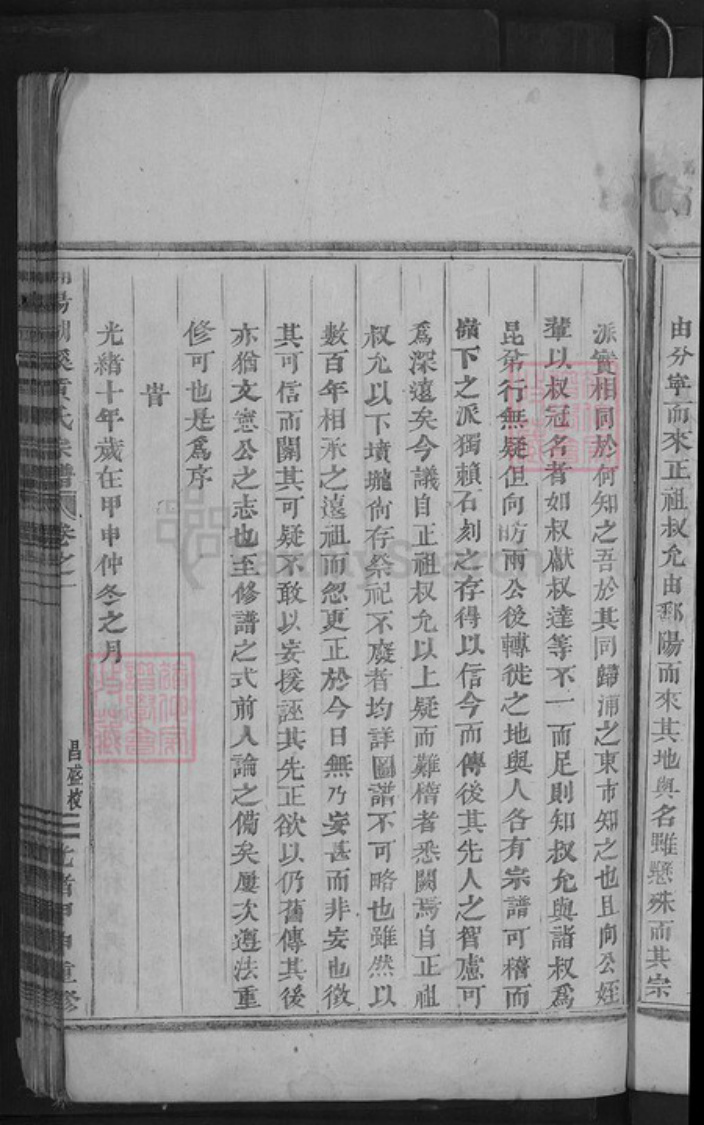 由分寧而來正祖叔允由鄱陽而來其地與名雖懸殊而其宗
派實相同於何知之吾於其同歸浦之東市知之也且向公姪
輩以叔冠名者如叔獻叔達等不一而足則知叔允與諸叔為
昆弟行無疑但向昉兩公後轉徙之地與人各有宗譜可稽而
嶺下之派獨賴石刻之存得以信今而傳後其先人之智慮可
為深遠矣今議自正祖叔允以上疑而難稽者悉闕焉自正祖
叔允以下墳壠尚存祭祀不廢者均詳圖譜不可略也雖然以
數百年相承之遠祖而忽更正於今日無乃妄甚而非妄也徵
其可信而闕其可疑不敢以妄援誣其先正欲以仍舊傳其後
亦猶文憲公之志也至修譜之式前人論之備矣屢次遵法重
修可也是為序
旹
光緒十年歲在甲申仲冬之月
陽湖溪黃氏宗譜 卷之一
昌盛校
光緒甲申重修
FamilySearch